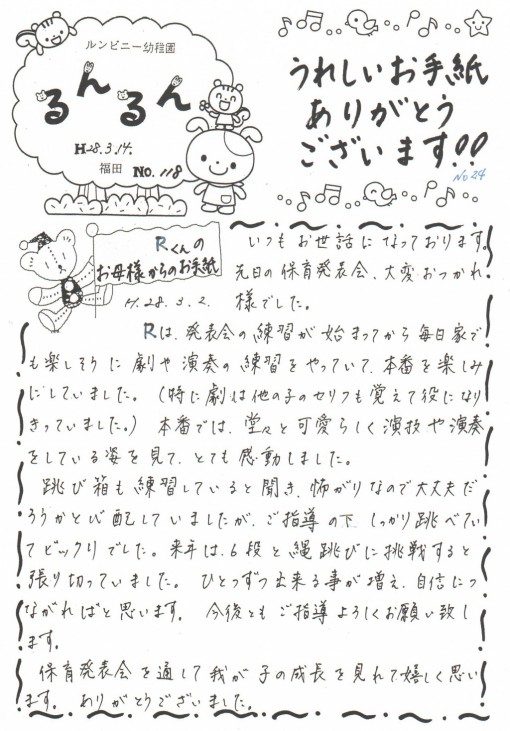 ルンビニー幼稚園
るんるん
H28.3.14.
福田 No.118
うれしいお手紙
ありがとう
ございます!!
No24
Rくんの
お母様からのお手紙
H.28.3.2.
いつもお世話になっております。
先日の保育発表会、大変おつかれ
様でした。
Rは、発表会の練習が始まってから毎日家で
も楽しそうに劇や演奏の練習をやっていて、本番を楽しみ
にしていました。(特に劇は他の子のセリフも覚えて役になり
きっていました。) 本番では、堂々と可愛らしく演技や演奏
をしている姿を見て、とても感動しました。
跳び箱も練習していると聞き、怖がりなので大丈夫だ
ろうかと心配していましたが、ご指導の下、しっかり跳べてい
てビックリでした。来年は、6段と縄跳びに挑戦すると
張り切っていました。 ひとつずつ出来る事が増え、自信につ
ながればと思います。 今後ともご指導よろしくお願い致し
ます。
保育発表会を通して我が子の成長を見れて嬉しく思い
ます。 ありがとうございました。